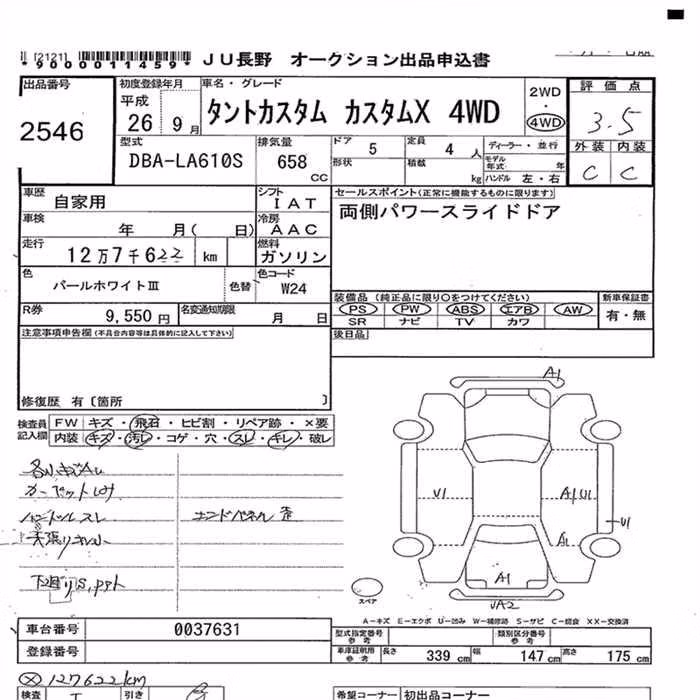 [2121]
*9000011459* JU長野 オークション出品申込書
出品番号 2546
初度登録年月 平成 26 9月
車名・グレード タントカスタム カスタムX 4WD
2WD・4WD
評価点 3.5
外装 内装
C C
型式 DBA-LA610S
排気量 658 cc
ドア 5
定員 4人
形状
積載 kg
ディーラー・並行
モデル年式 年
ハンドル 左・右
車歴 自家用
シフト IAT
車検 年 月( 日)
冷房 AAC
走行 12万7千622 km
燃料 ガソリン
色 パールホワイトⅢ 色替
色コード W24
R券 9,550円
名変通知期限 月 日
セールスポイント(正常に機能するものに限ります)
両側パワースライドドア
装備品 (純正品に限り○をつけてください)
PS PW ABS エアB AW
SR ナビ TV カワ
新車保証書 有・無
後日品
注意事項申告欄(不具合内容等は具体的に記入して下さい)
修復歴 有〔箇所 〕
検査員記入欄
FW キズ・飛石・ヒビ割・リペア跡・×要
内装 キズ・汚レ・コゲ・穴・スレ・キレ・破レ
ハンドルスレ
エンドパネル 歪
天張リキレ
A1
U1
A1U1
U1
A1
A1
UA2
スペア
A-キズ E-エクボ U-凹み W-補修跡 S-サビ C-腐食 XX-交換済
車台番号 0037631
登録番号
型式指定番号 参考
類別区分番号 参考
車庫証明用 参考 長さ 339cm 幅 147cm 高さ 175cm
127622km
検査
引き
希望コーナー 初出品コーナー